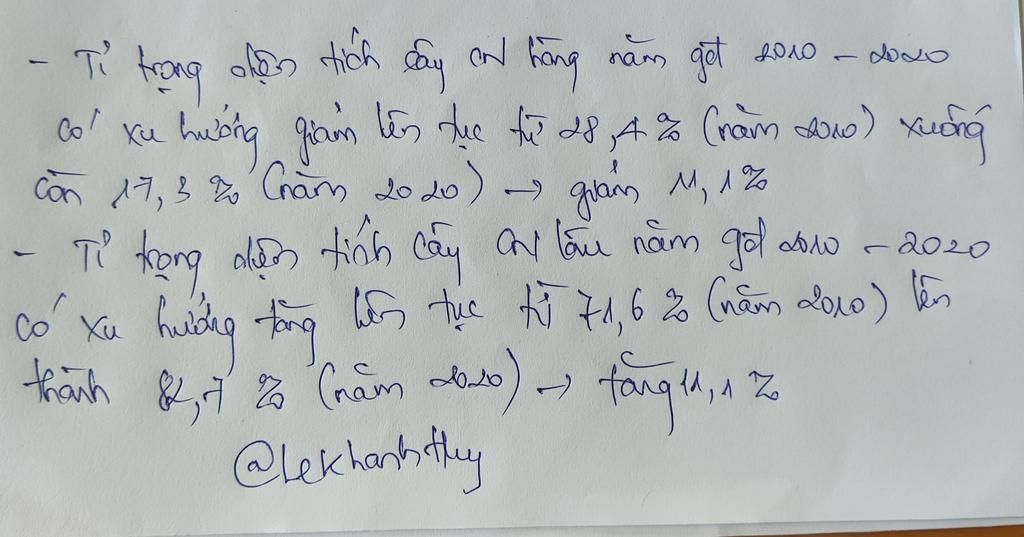 - Tỉ trọng diện tích cây CN hằng năm gđ 2010 - 2020
có xu hướng giảm liên tục từ 28,4 % (năm 2010) xuống
còn 17,3 % (năm 2020) → giảm 11,1 %
- Tỉ trọng diện tích cây CN lâu năm gđ 2010 - 2020
có xu hướng tăng liên tục từ 71,6 % (năm 2010) lên
thành 82,7 % (năm 2020) → tăng 11,1 %
@Lekhanhthy